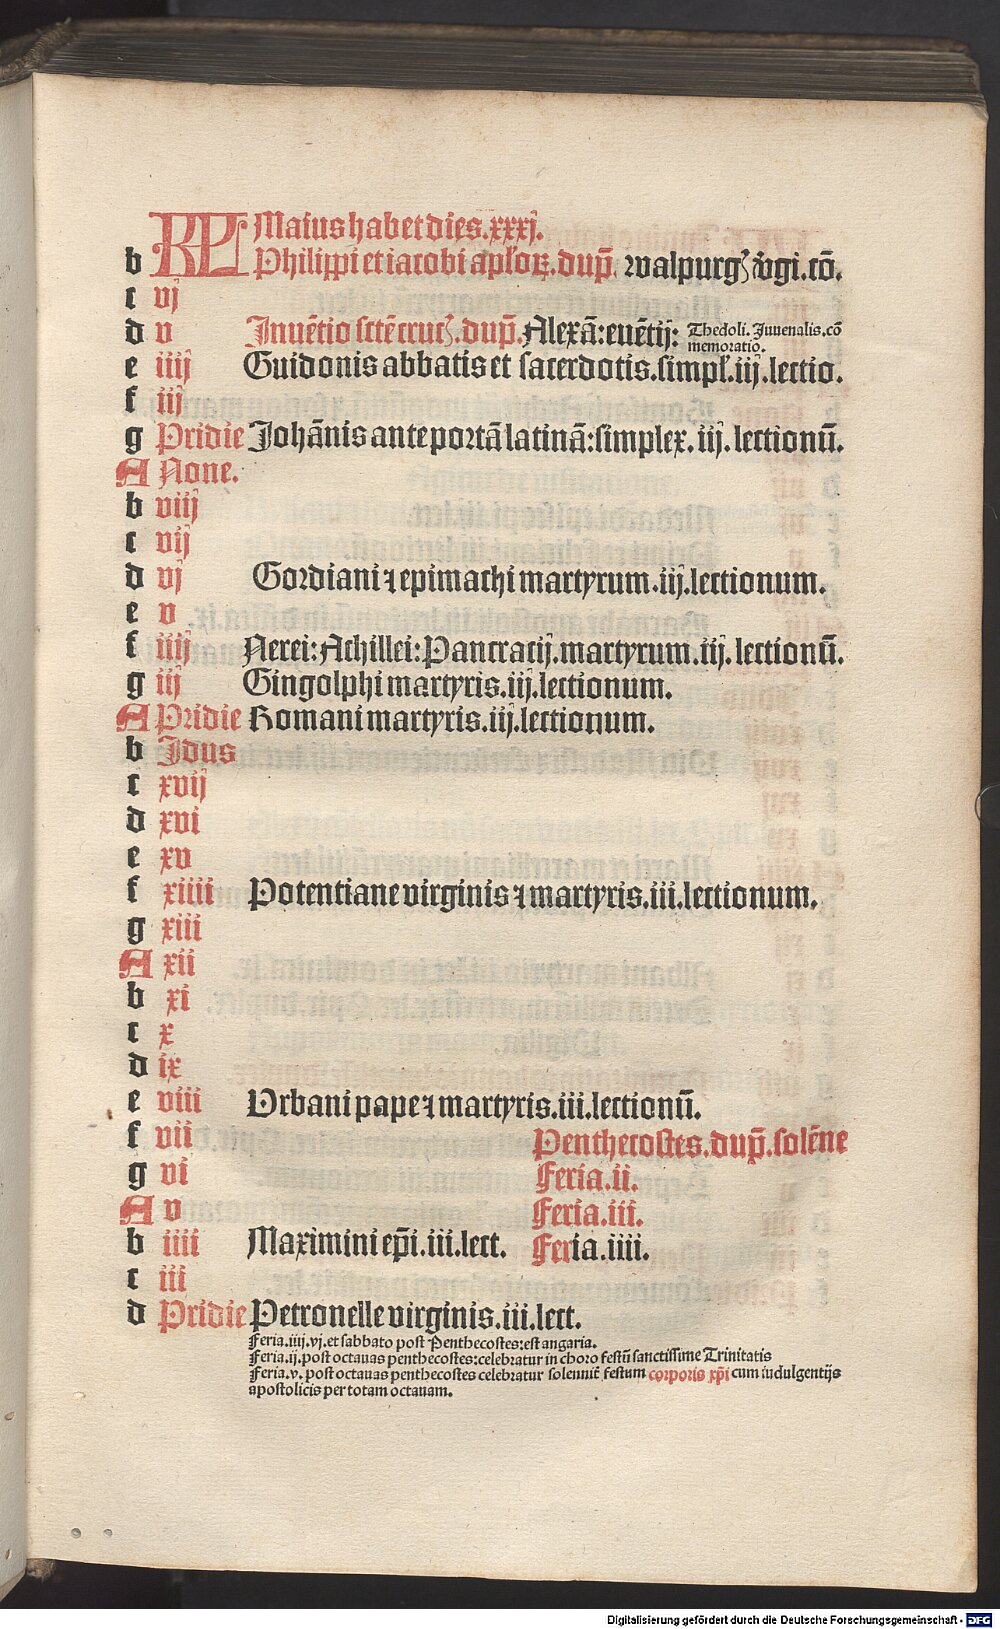 KL Maius habet dies.xxxj.
b Philippi et iacobi aplorꝝ.dup̄. walpurgꝫ v̓gi.cō.
c vj
d v Inuētio sctē crucꝭ.dup̄. Alexā:euētij: Thedoli.Juuenalis.cō
memoratio.
e iiij Guidonis abbatis et sacerdotis.simpl̓.iij.lectio.
f iij
g Pridie Johānis ante portā latinā:simplex.iij.lectionū.
A None.
b viij
c vij
d vj Gordiani ⁊ epimachi martyrum.iij.lectionum.
e v
f iiij Nerei:Achillei:Pancracij.martyrum.iij.lectionū.
g iij Gingolphi martyris.iij.lectionum.
A Pridie Romani martyris.iij.lectionum.
b Idus
c xvij
d xvi
e xv
f xiiii Potentiane virginis ⁊ martyris.iii.lectionum.
g xiii
A xii
b xi
c x
d ix
e viii Urbani pape ⁊ martyris.iii.lectionū.
f vii Penthecostes.dup̄.solēne
g vi Feria.ii.
A v Feria.iii.
b iiii Maximini ep̄i.iii.lect. Feria.iiii.
c iii
d Pridie Petronelle virginis.iii.lect.
Feria.iiij.vj.et sabbato post Penthecostes:est angaria.
Feria.ij.post octauas penthecostes:celebratur in choro festū sanctissime Trinitatis
Feria.v.post octauas penthecostes celebratur solennit̓ festum corporis xp̄i cum indulgentijs
apostolicis per totam octauam.
Digitalisierung gefördert durch die Deutsche Forschungsgemeinschaft - DFG